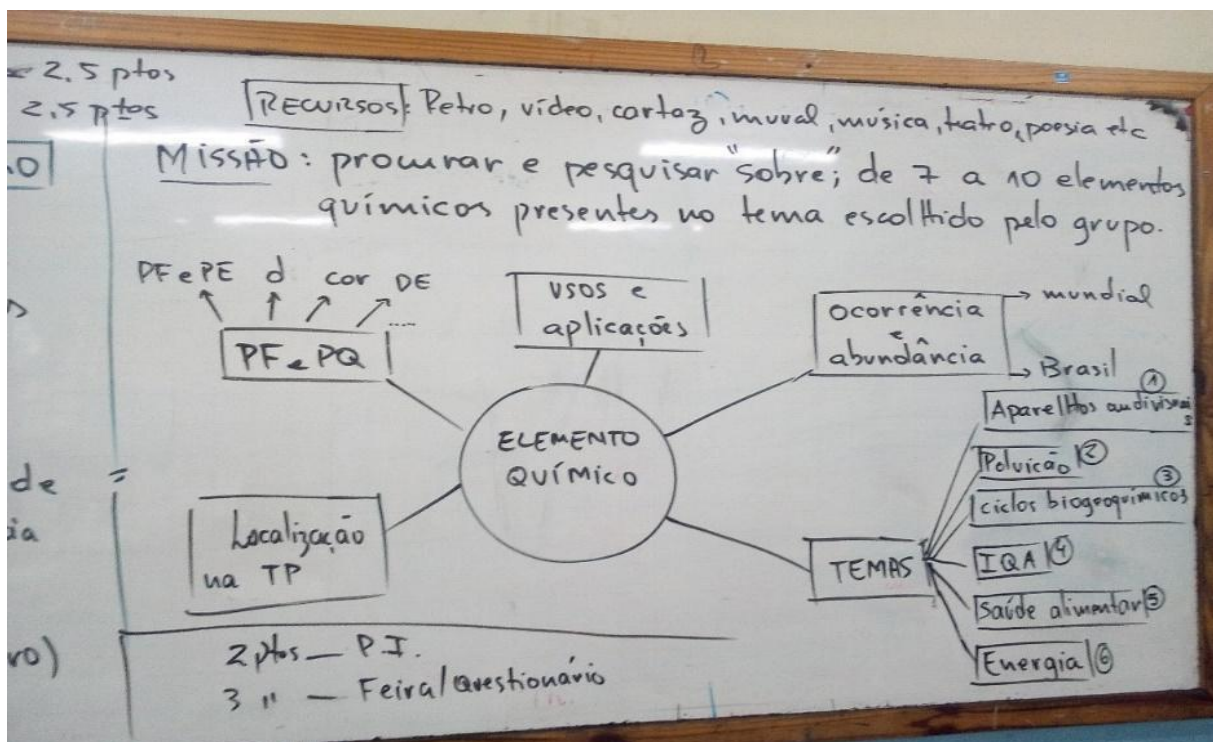 2,5 ptos
2,5 ptos
RECURSOS: Retro, vídeo, cartaz, mural, música, teatro, poesia etc
MISSÃO: procurar e pesquisar "sobre"; de 7 a 10 elementos
químicos presentes no tema escolhido pelo grupo.
PF e PE d cor DE
PF e PQ
USOS e
aplicações
Ocorrência
e
abundância
mundial
Brasil
ELEMENTO
QUÍMICO
Localização
na TP
TEMAS
Aparelhos audivisuais ①
Poluição ②
ciclos biogeoquímicos ③
IQA ④
Saúde alimentar ⑤
Energia ⑥
2 ptos — P.I.
3 " — Feira/Questionário
de